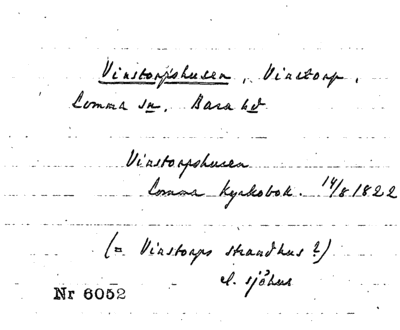 Vinstorpshusen, Vinstorp,
Lomma sn, Bara hd
Vinstorpshusen
Lomma Kyrkobok. 14/8 1822
(= Vinstorps strandhus?)
el. sjöhus
Nr 6052